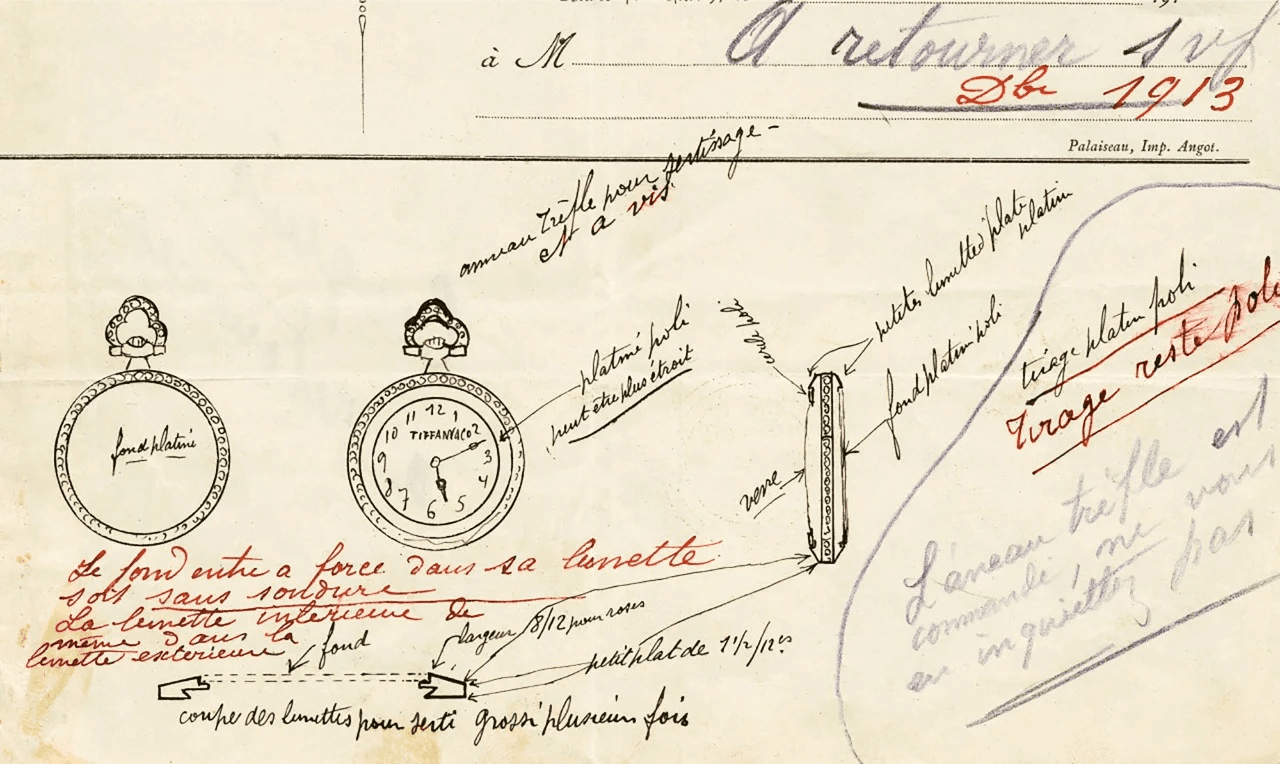 à M A retourner svp
Dbr 1913
Palaiseau, Imp. Angot.
anneau trèfle pour sertissage -
et a vis.
petites lunettes plates
platine
platiné poli
peut être plus étroit
fond platine poli
tirage platine poli
Tirage reste poli
fond platiné
12
11 1
10 TIFFANY & CO 2
9 3
8 4
7 5
6
verre
L'anneau trèfle est
commandé, ne vous
en inquiétez pas
Le fond entre a force dans sa lunette
soit sans soudure
La lunette intérieure de
même dans la
lunette extérieure
fond
largeur 8/12 pour roses
petit plat de 1 1/2/12es
coupe des lunettes pour serti grossi plusieurs fois